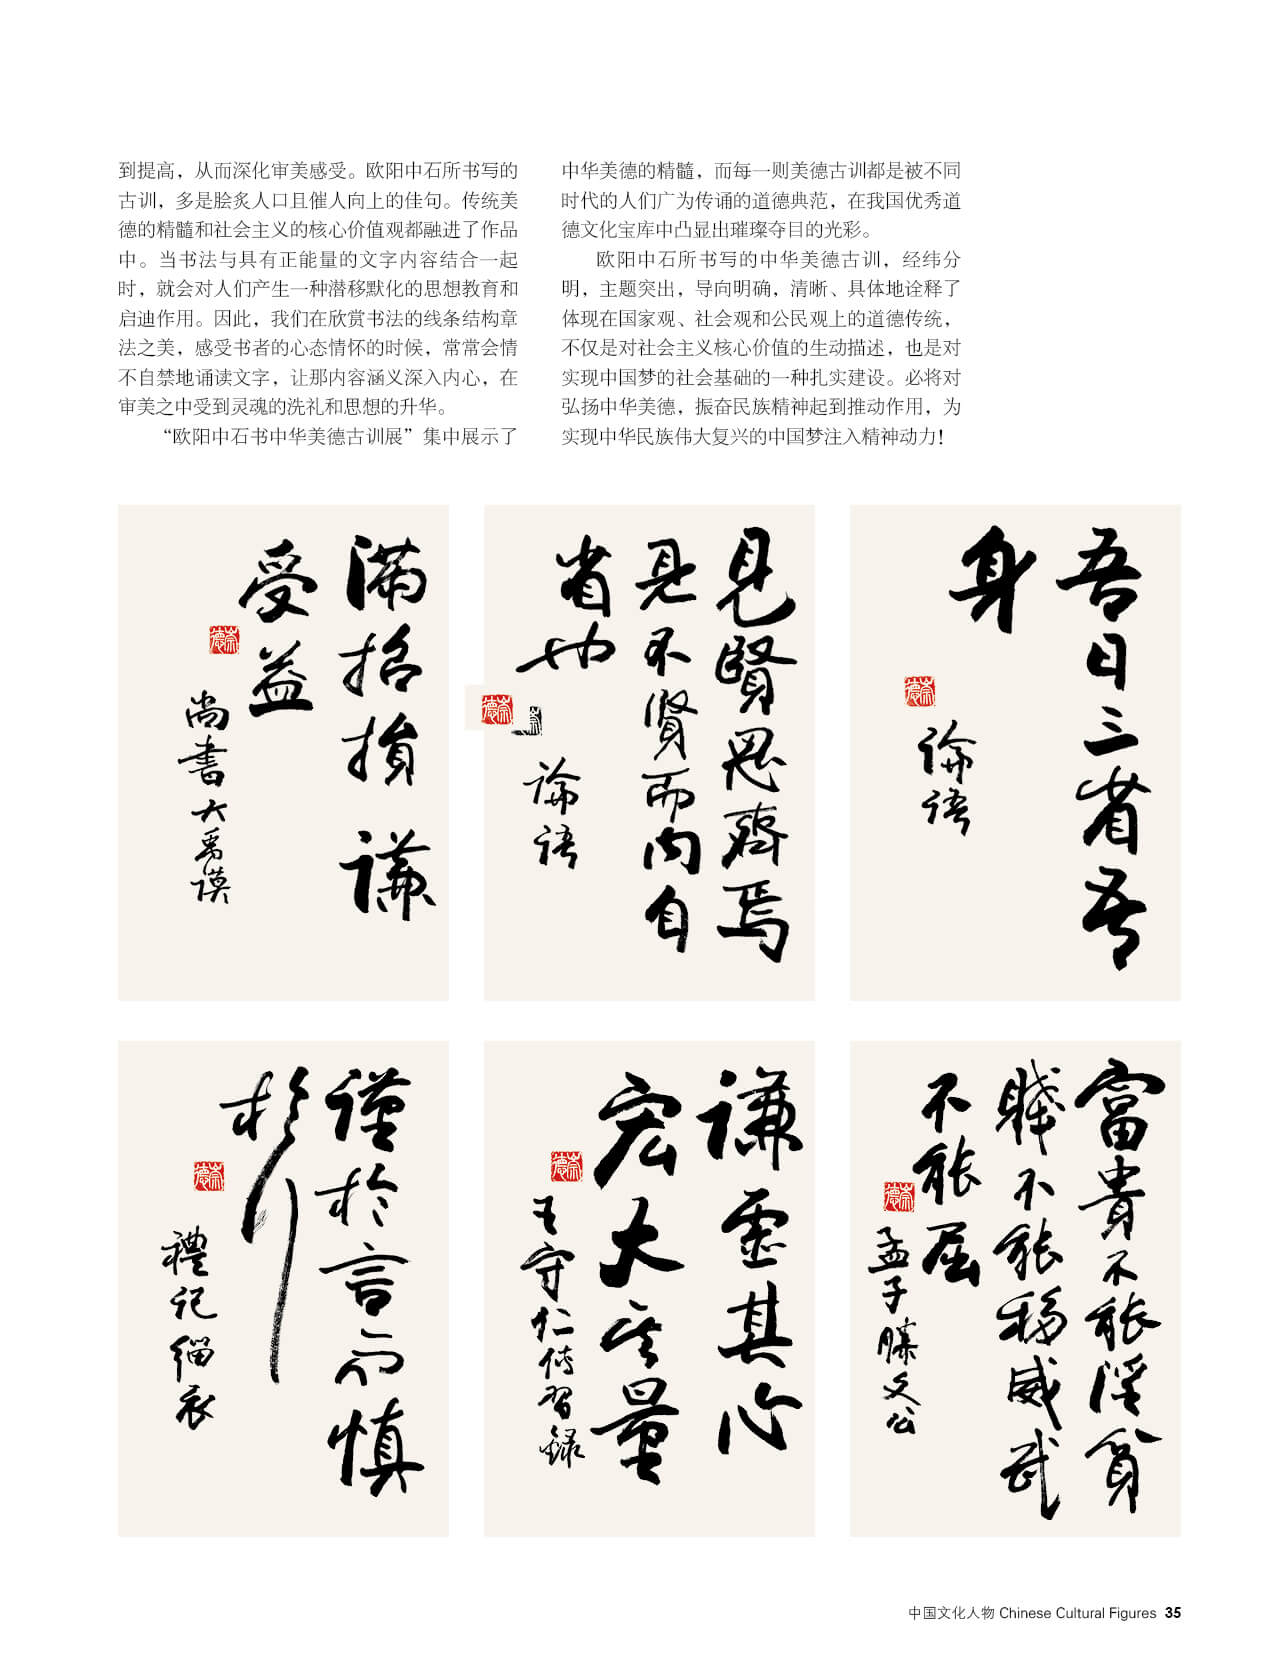 到提高，从而深化审美感受。欧阳中石所书写的
古训，多是脍炙人口且催人向上的佳句。传统美
德的精髓和社会主义的核心价值观都融进了作品
中。当书法与具有正能量的文字内容结合一起
时，就会对人们产生一种潜移默化的思想教育和
启迪作用。因此，我们在欣赏书法的线条结构章
法之美，感受书者的心态情怀的时候，常常会情
不自禁地诵读文字，让那内容涵义深入内心，在
审美之中受到灵魂的洗礼和思想的升华。
“欧阳中石书中华美德古训展”集中展示了
中华美德的精髓，而每一则美德古训都是被不同
时代的人们广为传诵的道德典范，在我国优秀道
德文化宝库中凸显出璀璨夺目的光彩。
欧阳中石所书写的中华美德古训，经纬分
明，主题突出，导向明确，清晰、具体地诠释了
体现在国家观、社会观和公民观上的道德传统，
不仅是对社会主义核心价值的生动描述，也是对
实现中国梦的社会基础的一种扎实建设。必将对
弘扬中华美德，振奋民族精神起到推动作用，为
实现中华民族伟大复兴的中国梦注入精神动力！
满招损谦
受益
尚書大禹谟
崇德
見賢思齊焉
見不賢而内自
省也
論语
崇德
吾日三省吾
身
論语
崇德
谨於言而慎
於行
禮记缁衣
崇德
谦虚其心
宏大其量
王守仁傳習録
崇德
富貴不能淫貧
賤不能移威武
不能屈
孟子滕文公
崇德
中国文化人物 Chinese Cultural Figures 35